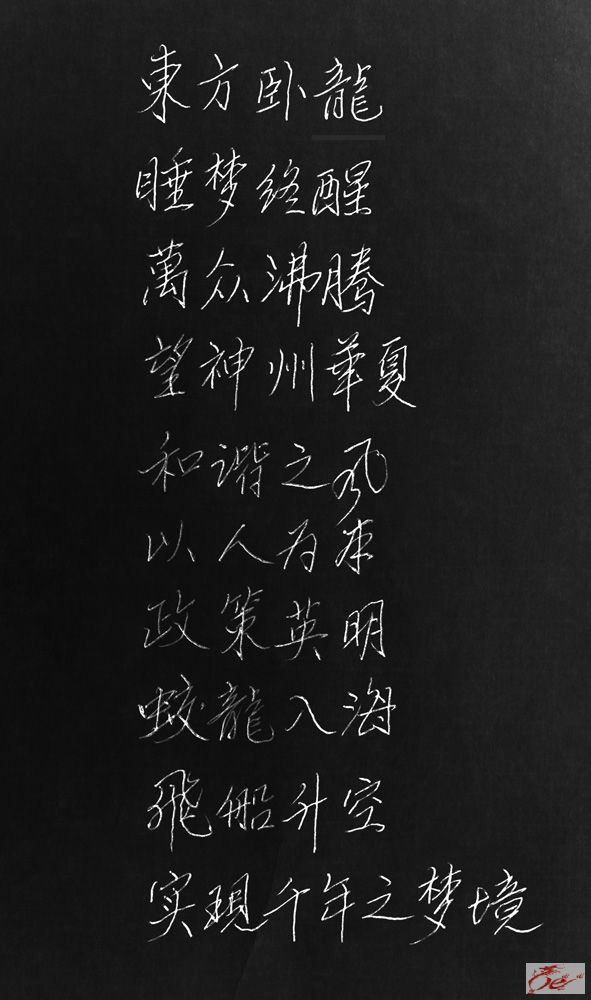 東方卧龍
睡梦终醒
萬众沸腾
望神州華夏
和谐之风
以人为本
政策英明
蛟龍入海
飛船升空
实現千年之梦境